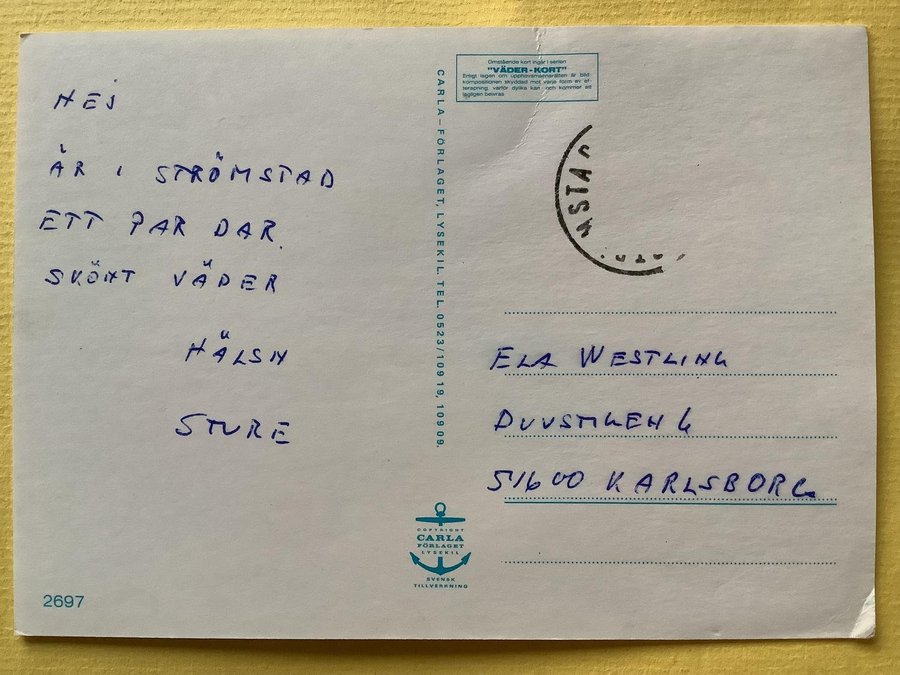 HEJ
ÄR I STRÖMSTAD
ETT PAR DAR.
SKÖNT VÄDER
HÄLSN
STURE
2697
CARLA-FÖRLAGET, LYSEKIL. TEL. 0523/109 19, 109 09.
Omstående kort ingår i serien
"VÄDER-KORT"
Enligt lagen om upphovsmannarätten är bild-
kompositionen skyddad mot varje form av ef-
terapning, varför dylika kan och kommer att
lagligen beivras
ELA WESTLING
DUVSTIGEN 6
51600 KARLSBORG
COPYRIGHT
CARLA
FÖRLAGET
LYSEKIL
SVENSK
TILLVERKNING